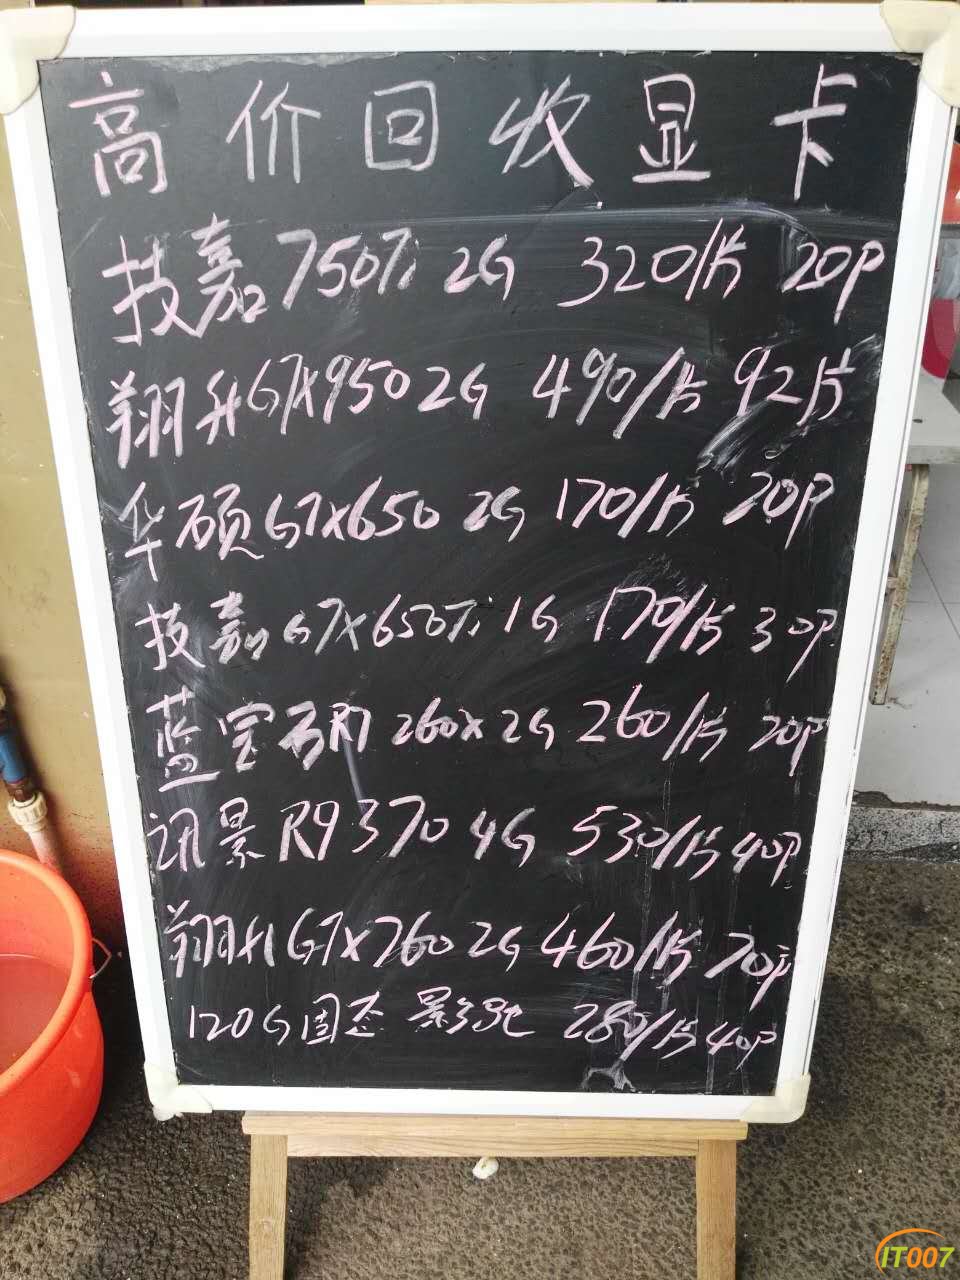 高价回收显卡
技嘉750Ti 2G 320/片 20P
翔升GTX950 2G 490/片 92片
华硕GTX650 2G 170/片 20P
技嘉GTX650Ti 1G 170/片 30P
蓝宝石R7 260X 2G 260/片 20P
讯景R9 370 4G 530/片 40P
翔升GTX260 2G 460/片 70P
120G固态 影驰 280/片 40P
IT007